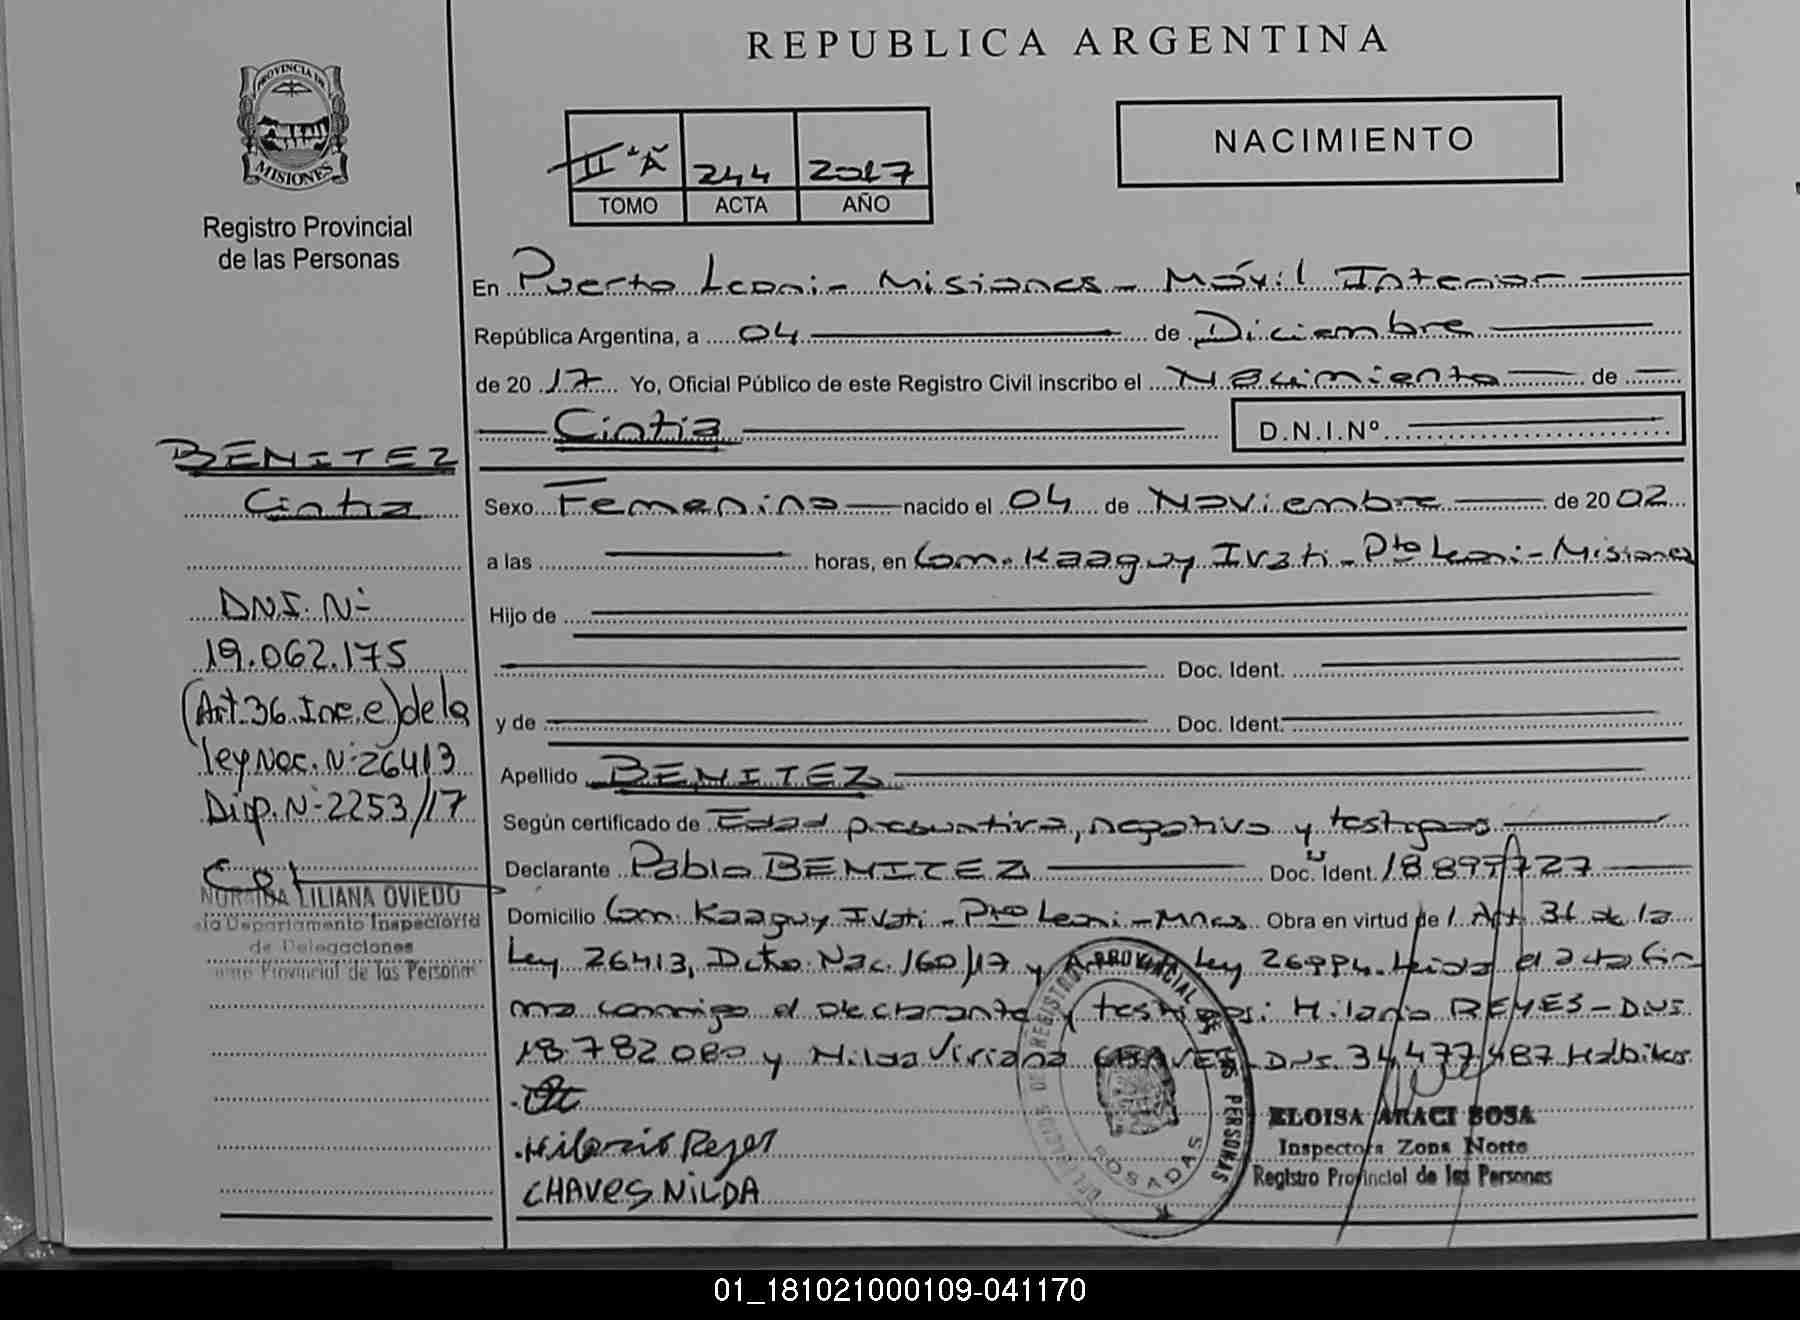 REPUBLICA ARGENTINA
PROVINCIA DE
MISIONES
Registro Provincial
de las Personas
II "A" 244 2017
TOMO ACTA AÑO
NACIMIENTO
En Puerto Leoni - Misiones - Móvil Interior
República Argentina, a 04 de Diciembre
de 20 17 Yo, Oficial Público de este Registro Civil inscribo el Nacimiento de
Cintia D.N.I.Nº
BENITEZ
Cintia
DNI. Nº
19.062.175
(Art. 36 Inc. e) de la
ley Nac. Nº 26413
Disp. Nº 2253/17
LILIANA OVIEDO
Departamento Inspectoría
de Delegaciones
Provincial de las Personas
Sexo Femenino nacido el 04 de Noviembre de 20 02
a las horas, en Com. Kaaguy Ivati - Pto Leoni - Misiones
Hijo de
Doc. Ident.
y de Doc. Ident.
Apellido BENITEZ
Según certificado de Edad presuntiva, negativo y testigos
Declarante Pablo BENITEZ Doc. Ident. 18 897 727
Domicilio Com. Kaaguy Ivati - Pto Leoni - Mnes Obra en virtud de l Art. 36 de la
Ley 26413, Dcto. Nac. 160/17 y Ley 26994. Leida el acta fir
ma conmigo el declarante y testigos: Hilario REYES - DNI.
18 782 080 y Nilda Viviana CHAVES - DNI. 34 477 487
Hilario Reyes
CHAVES NILDA
PROVINCIAL DE LAS PERSONAS
POSADAS
ELOISA ARACI SOSA
Inspectora Zona Norte
Registro Provincial de las Personas
01_181021000109-041170